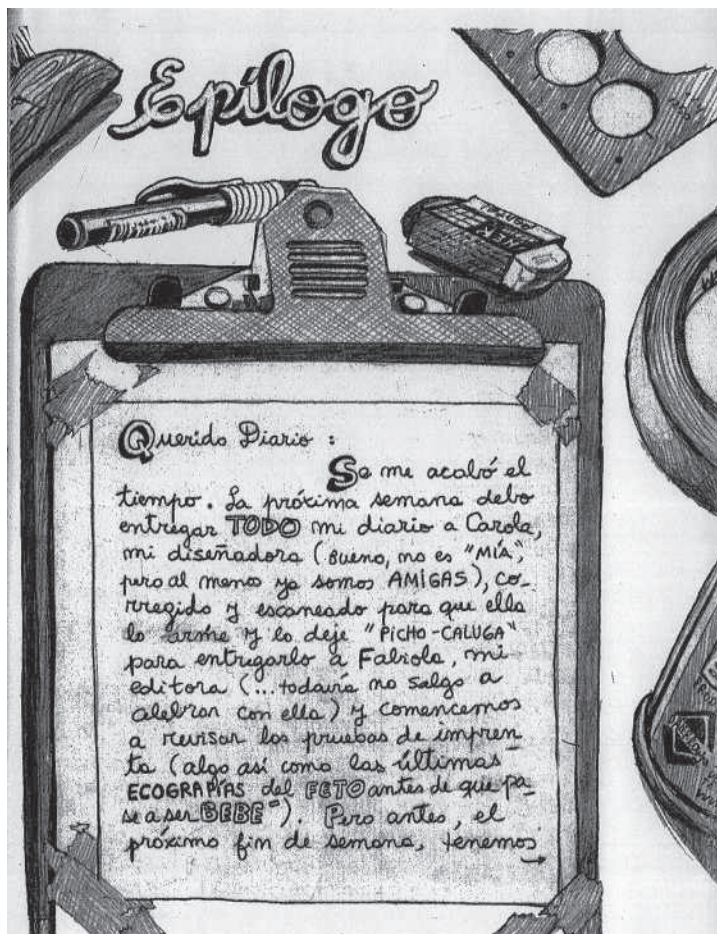 Epílogo
Querido Diario :
Se me acabó el
tiempo. La próxima semana debo
entregar TODO mi diario a Carola,
mi diseñadora (Bueno, no es "MÍA",
pero al menos ya somos AMIGAS), co-
rregido y escaneado para que ella
lo arme y lo deje "PICHO-CALUGA"
para entregarlo a Fabiola, mi
editora (...todavía no salgo a
celebrar con ella) y comencemos
a revisar las pruebas de impren
ta (algo así como las últimas
ECOGRAFÍAS del FETO antes de que pa-
se a ser BEBE"). Pero antes, el
próximo fin de semana, tenemos